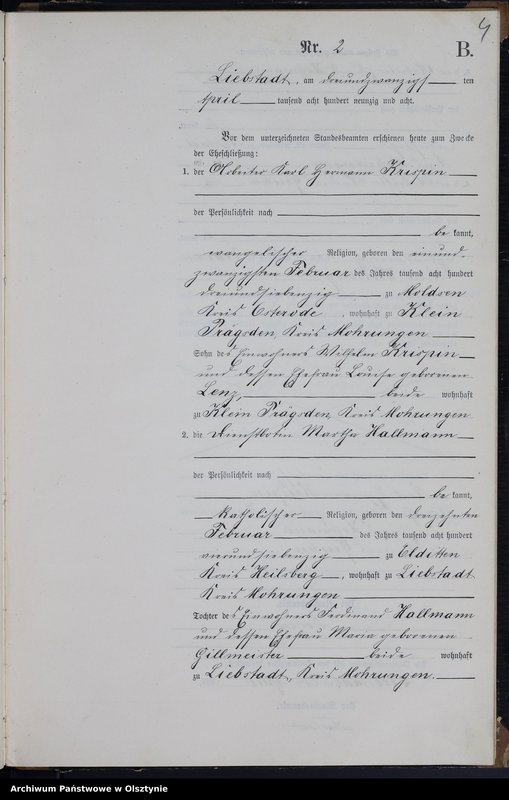 4
Nr. 2 B.
Liebstadt, am dreiundzwanzigs ten
April tausend acht hundert neunzig und acht.
Vor dem unterzeichneten Standesbeamten erschienen heute zum Zwecke
der Eheschließung:
1. der Arbeiter Karl Hermann Krispin
der Persönlichkeit nach
be kannt,
evangelischer Religion, geboren den einund-
zwanzigsten Februar des Jahres tausend acht hundert
dreiundsiebenzig zu Moldsen
Kreis Osterode, wohnhaft zu Klein
Prägsden, Kreis Mohrungen
Sohn des Einwohners Wilhelm Krispin
und dessen Ehefrau Louise geborenen
Lenz, beide wohnhaft
zu Klein Prägsden, Kreis Mohrungen
2. die Dienstbotin Martha Hallmann
der Persönlichkeit nach
be kannt,
katholischer Religion, geboren den dreizehnten
Februar des Jahres tausend acht hundert
vierundsiebenzig zu Elditten
Kreis Heilsberg, wohnhaft zu Liebstadt
Kreis Mohrungen
Tochter des Einwohners Ferdinand Hallmann
und dessen Ehefrau Maria geborenen
Gillmeister beide wohnhaft
zu Liebstadt, Kreis Mohrungen.
Archiwum Państwowe w Olsztynie